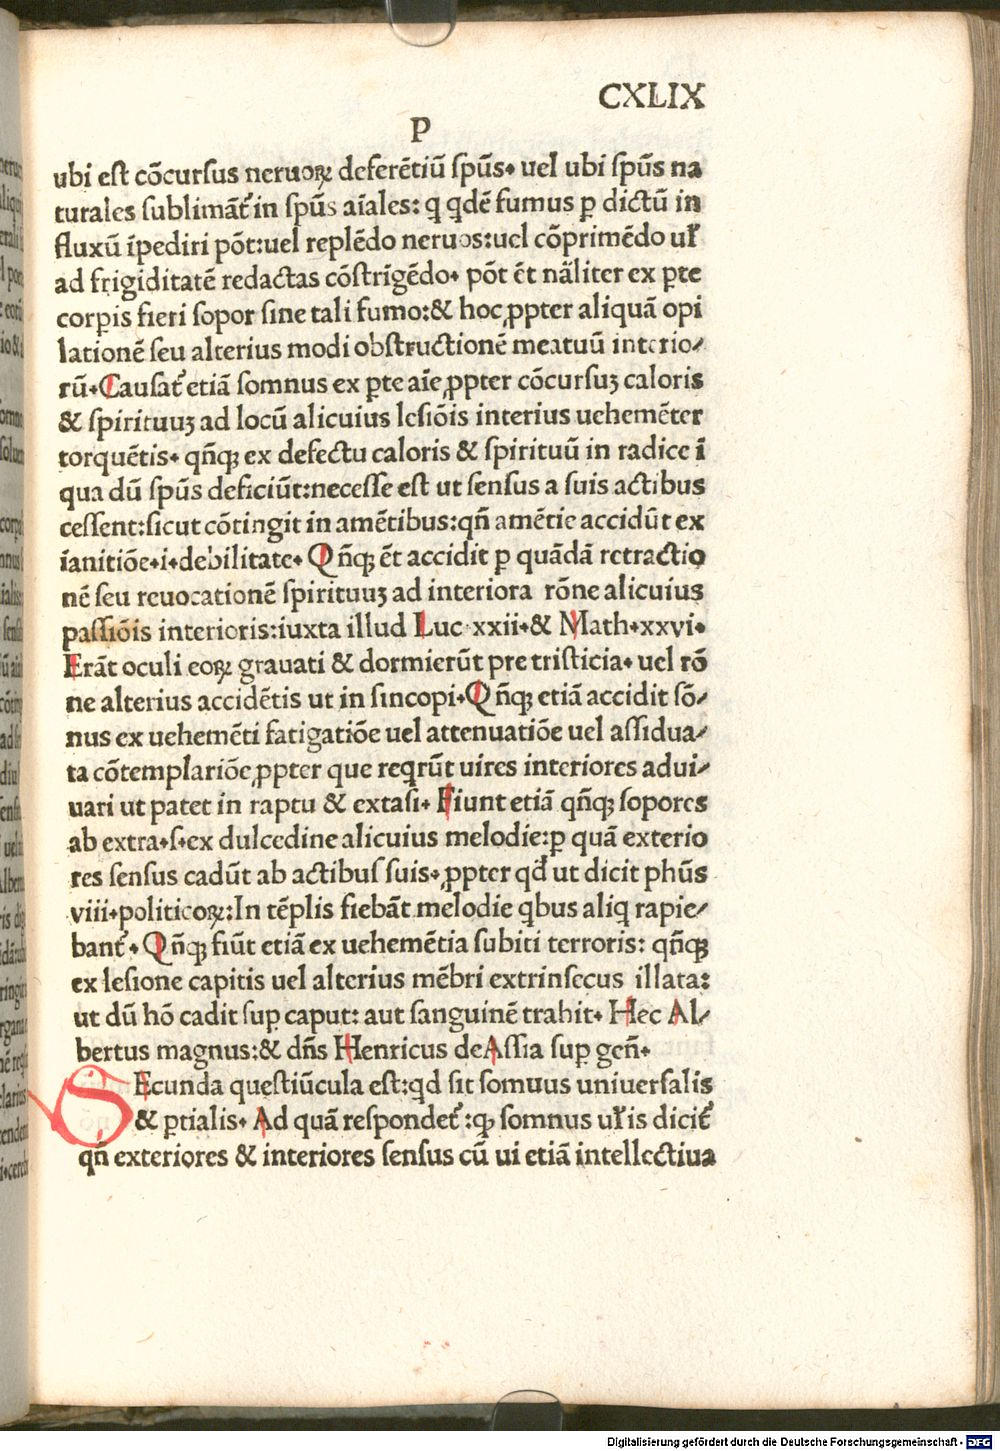 CXLIX
P
ubi est cōcursus neruoꝝ deferētiū spūs. uel ubi spūs na
turales sublimāt᷑ in spūs aīales: q qdē fumus ꝑ dictū in
fluxū īpediri pōt:uel replēdo neruos:uel cōprimēdo ul̄
ad frigiditatē redactas cōstrīgēdo. pōt ēt nāliter ex ꝑte
corꝑis fieri sopor sine tali fumo:& hoc ꝓpter aliquā opi
lationē seu alterius modi obstructionē meatuū interio⸗
rū. Causat᷑ etiā somnus ex ꝑte aīe ꝓpter cōcursuꝫ caloris
& spirituuꝫ ad locū alicuius lesiōis interius uehemēter
torquētis. qn̄qꝫ ex defectu caloris & spirituū in radice ī
qua dū spūs deficiūt:necesse est ut sensus a suis actibus
cessent:sicut cōtingit in amētibus:qn̄ amētie accidūt ex
īanitiōe.i.debilitate. Qn̄qꝫ ēt accidit ꝑ quādā retractio
nē seu reuocationē spirituuꝫ ad interiora rōne alicuius
passiōis interioris:iuxta illud Luc xxii.& Math.xxvi.
Erāt oculi eoꝝ grauati & dormierūt pre tristicia. uel rō
ne alterius accidētis ut in sincopi. Qn̄qꝫ etiā accidit sō⸗
nus ex uehemēti fatigatiōe uel attenuatiōe uel assidua⸗
ta cōtemplariōe ꝓpter que reqrūt uires interiores adui⸗
uari ut patet in raptu & extasi. Fiunt etiā qn̄qꝫ sopores
ab extra.s.ex dulcedine alicuius melodie:ꝑ quā exterio
res sensus cadūt ab actibus suis. ꝓpter qđ ut dicit phūs
viii.politicoꝝ:In tēplis fiebāt melodie qbus aliq rapie⸗
bant᷑. Qn̄qꝫ fiūt etiā ex uehemētia subiti terroris: qn̄qꝫ
ex lesione capitis uel alterius mēbri extrinsecus illata:
ut dū hō cadit suꝑ caput: aut sanguinē trahit. Hec Al⸗
bertus magnus:& dn̄s Henricus de Assia suꝑ gen̄.
SEcunda questiūcula est:qd sit somuus uniuersalis
& ꝑtialis. Ad quā respondet᷑: ꝙ somnus ul̄is dicit᷑
qn̄ exteriores & interiores sensus cū ui etiā intellectiua
Digitalisierung gefördert durch die Deutsche Forschungsgemeinschaft - DFG